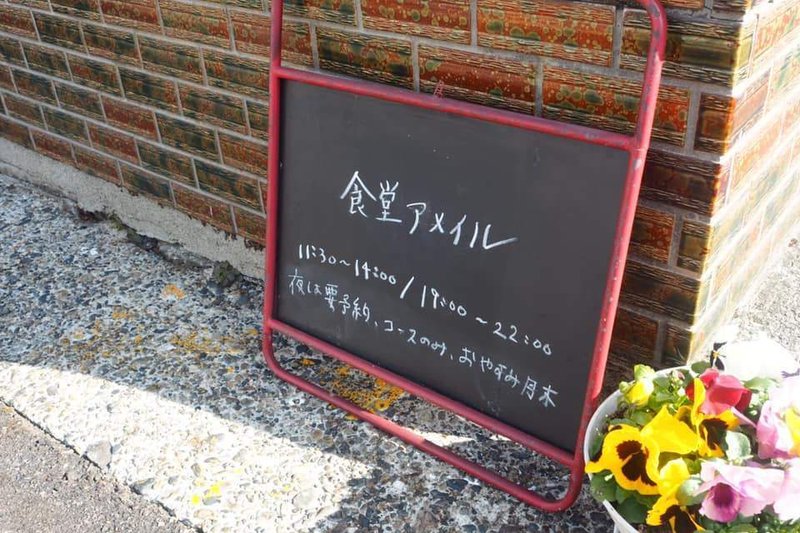 食堂アメイル
11:30～14:00/19:00～22:00
夜は要予約、コースのみ、おやすみ月木